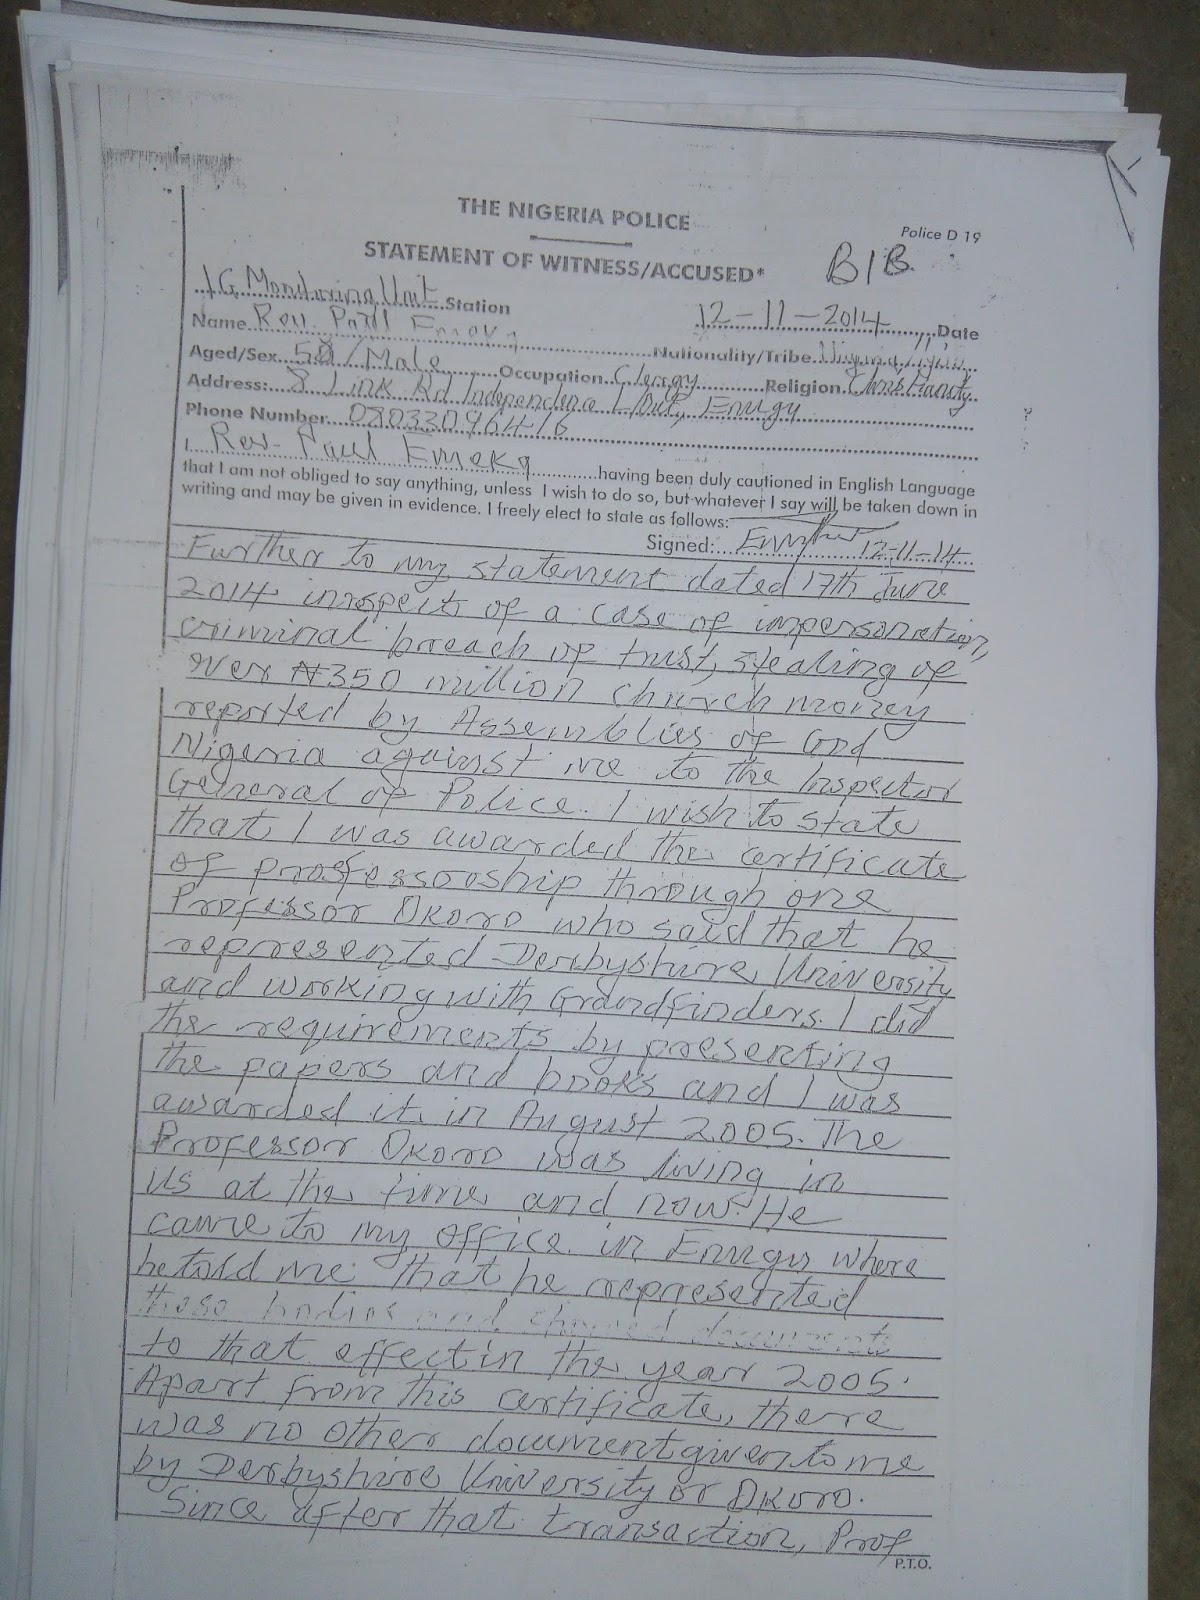 THE NIGERIA POLICE
Police D 19
STATEMENT OF WITNESS/ACCUSED*
B1B
IG Monitoring Unit Station
12-11-2014 Date
Name Rev. Paul Emeka Nationality/Tribe Nigeria
Aged/Sex 58/Male Occupation Clergy Religion Christianity
Address: 8 Link Rd Independence L/out, Enugu
Phone Number 08033096416
I, Rev. Paul Emeka having been duly cautioned in English Language
that I am not obliged to say anything, unless I wish to do so, but whatever I say will be taken down in
writing and may be given in evidence. I freely elect to state as follows:
Signed: 12-11-14
Further to my statement dated 17th June
2014 inrespect of a case of impersonation,
criminal breach of trust, stealing of
over ₦350 million church money
reported by Assemblies of God
Nigeria against me to the Inspector
General of Police. I wish to state
that I was awarded the certificate
of professorship through one
Professor Okoro who said that he
represented Derbyshire University
and working with Grandfinders. I did
the requirements by presenting
the papers and books and I was
awarded it in August 2005. The
Professor Okoro was living in
US at the time and now. He
came to my office in Enugu where
he told me that he represented
those bodies and showed documents
to that effect in the year 2005.
Apart from this certificate, there
was no other document given to me
by Derbyshire University or Okoro.
Since after that transaction, Prof
P.T.O.